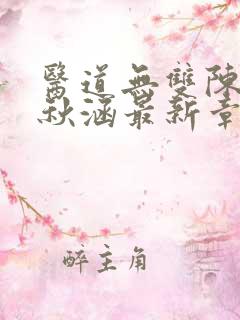 醫道無雙陳
秋涵最新章
醉主角